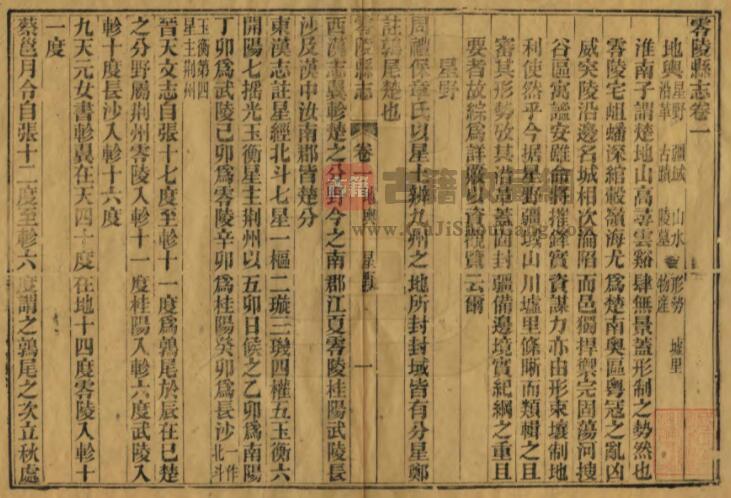 零陵縣志卷一
地輿 星野 疆域 山水 形勢 墟里
沿革 古蹟 陵墓 物産
淮南子謂楚地山高尋雲谿肆無景蓋形制之勢然也
零陵宅岨蟠深綰轂嶺海尤爲楚南奧區粤冦之亂凶
威突陵沿邊名城相次淪陷而邑獨捍禦完固蕩河搜
谷區寓謐安雖命將摧鋒實資謀力亦由形束壤制地
利使然乎今据星野疆域山川墟里條晰而類輯之且
審其形勢攷其沿革蓋固封疆備邊境實紀綱之重且
要者故綜爲詳覈以資觀覽云爾
星野
周禮保章氏以星土辨九州之地所封封域皆有分星鄭
註鶉尾楚也
零陵縣志 卷一 地輿 星野 一
西漢志翼軫楚之分野今之南郡江夏零陵桂陽武陵長
沙及漢中汝南郡皆楚分
東漢志註星經北斗七星一樞二璇三璣四權五玉衡六
開陽七搖光玉衡星主荆州以五卯日候之乙卯爲南陽
丁卯爲武陵己卯爲零陵辛卯爲桂陽癸卯爲長沙 一作北斗
玉衡第四
星主荆州
晉天文志自張十七度至軫十一度爲鶉尾於辰在巳楚
之分野屬荆州零陵入軫十一度桂陽入軫六度武陵入
軫十度長沙入軫十六度
九天元女書軫翼在天四十度在地十四度零陵入軫十
一度
蔡邕月令自張十二度至軫六度謂之鶉尾之次立秋處
古籍
www.GuJiShouCang.com